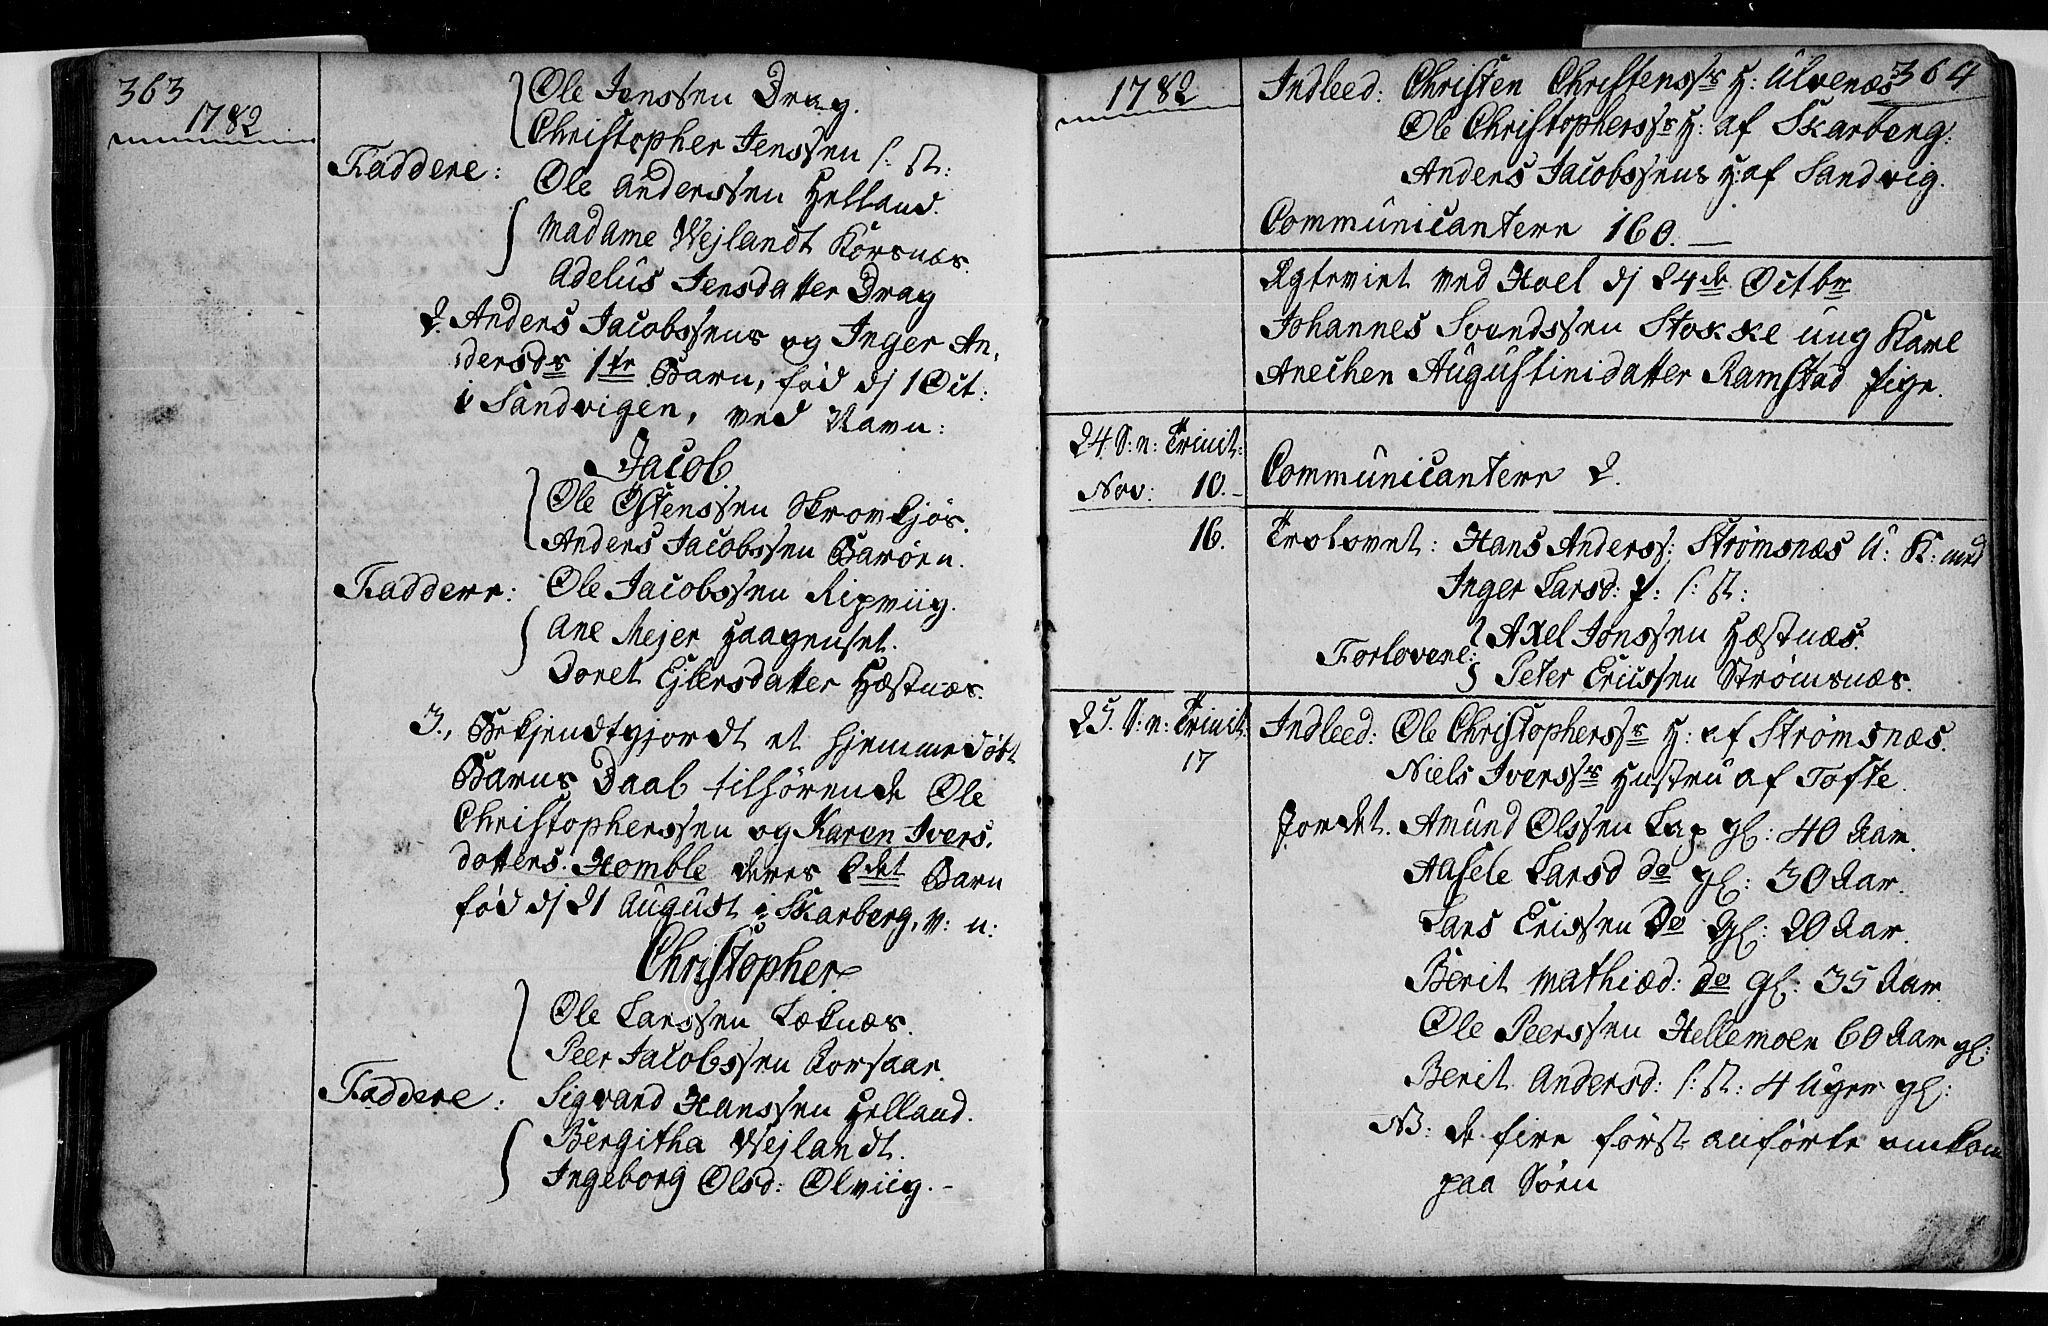 363
1782
Ole Jenssen Drag.
Christopher Jenssen s: st:
Faddere:
Ole Anderssen Helland.
Madame Wejlandt Korsnæs.
Adelus Jensdatter Drag
2. Anders Jacobssens og Inger An-
dersdr 1te Barn, fød dj 1 Oct:
i Sandvigen, ved Navn:
Jacob
Ole Østenssen Skromkjós.
Anders Jacobssen Barøen.
Faddere: Ole Jacobssen Ripviig.
Ane Mejer Haagenset.
Doret Ejlersdatter Hæstnæs.
3., Bekjendtgjordt et hjemmedøbt
Barns Daab tilhørende Ole
Christopherssen og Karen Ivers-
datters Homble deres 2det Barn
fød dj 21 August i Skarberg, v: n:
Christopher
Ole Larssen Løknæs.
Peer Jacobssen Korsaar.
Faddere: Sigvard Hanssen Helland.
Bergitha Wejlandt.
Ingeborg Olsd: Olviig.
364
1782
Indleed: Christen Christenssrs H: Ulvenæs
Ole Christopherssrs H: af Skarberg.
Anders Jacobssens H: af Sandvig.
Communicantere 160.
Ægteviet ved Hoel dj 24de Octbr
Johannes Svendssen Stokke ung Karl
Anechen Augustinidatter Ramstad Pige.
24 S: n: Trinit:
Nov: 10.
Communicantere 2.
16. Trolovet: Hans Anderss: Strømsnæs U: K: med
Inger Larsd: P: s: st:
Axel Jonssen Hæstnæs.
Forlovere:
Peter Ericssen Strømsnæs.
25. S: n: Trinit:
17
Indleed: Ole Christopherssrs H: af Strømsnæs.
Niels Iverssrs Hustru af Tofte.
Jordet. Amund Olssen Lap gl: 40 Aar.
Aasele Larsd do gl: 30 Aar.
Lars Erissen Do gl: 20 Aar.
Berit Mathiæd: do gl: 35 Aar.
Ole Peerssen Hellemoen 60 Aar gl:
Berit Andersd: s: st: 4 Uger gl:
NB: de fire først anførte omkom
paa Søen